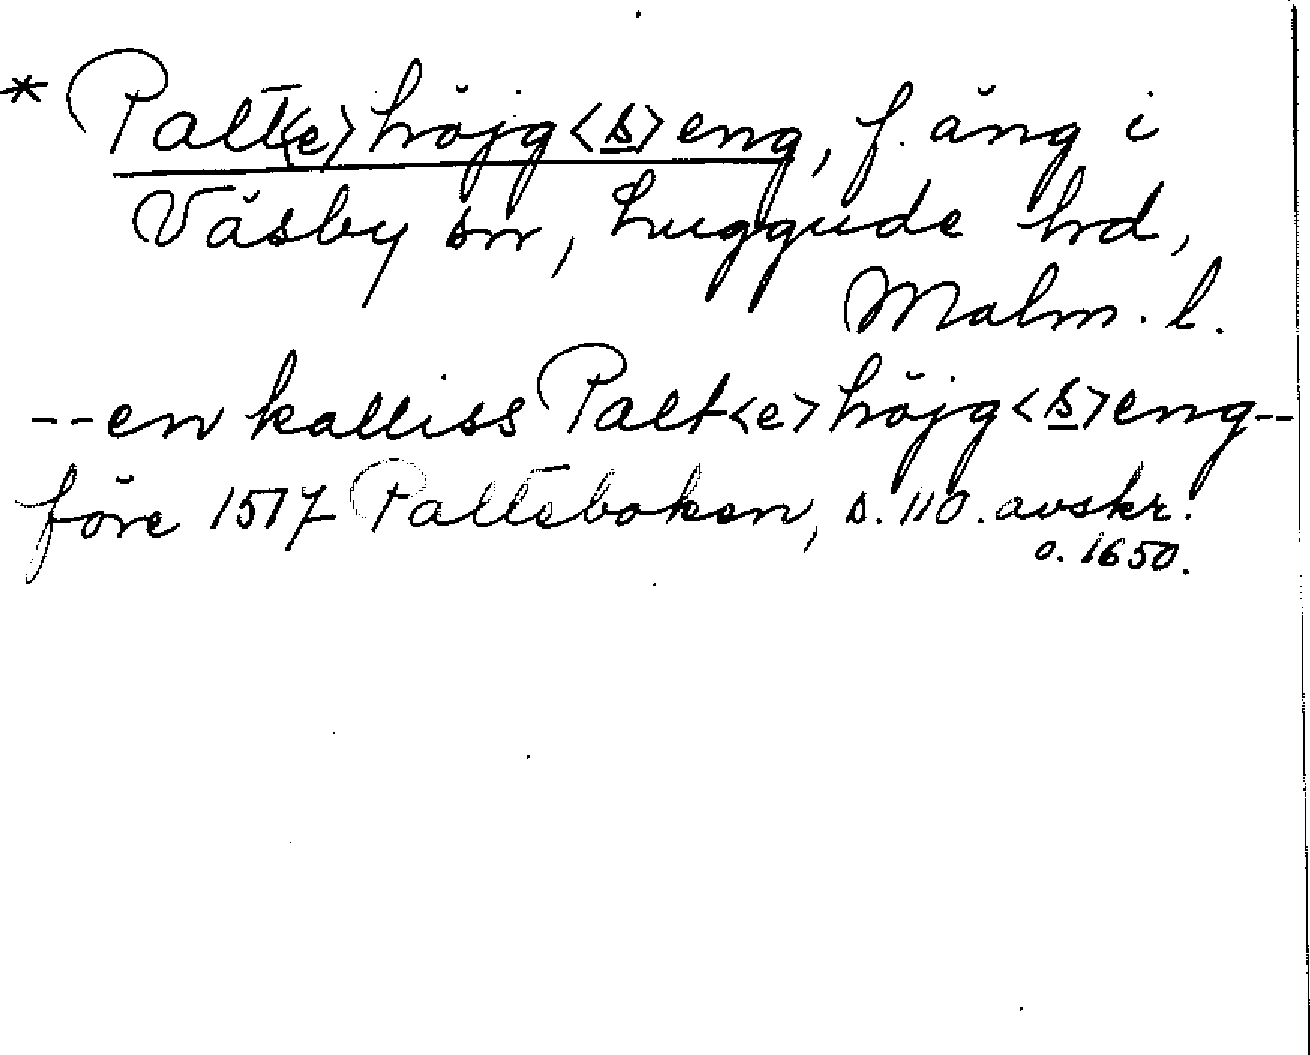 * Palt<e>höjg<s>eng, f. äng i
Väsby sn, Luggude hd,
Malm. l.
--en kalliss Palt<e>höjg<s>eng--
före 1517 Palteboken, s. 110. avskr.
o. 1650.